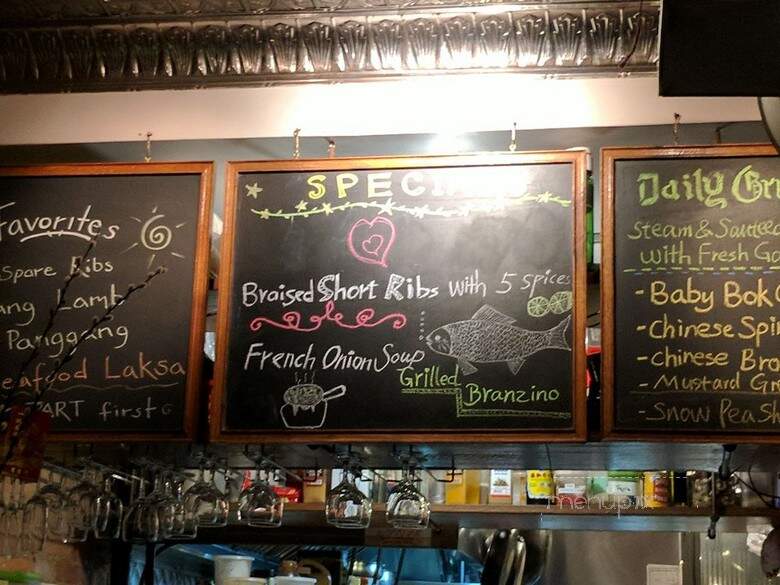 Favorites
Spare Ribs
Lamb
Panggang
Laksa
ART first
SPEC
Braised Short Ribs with 5 spices
French Onion Soup
Grilled
Branzino
Daily
Steam &
with Fresh
- Baby Bok
- Chinese
- Chinese
- Mustard
- Snow Pea
menupix